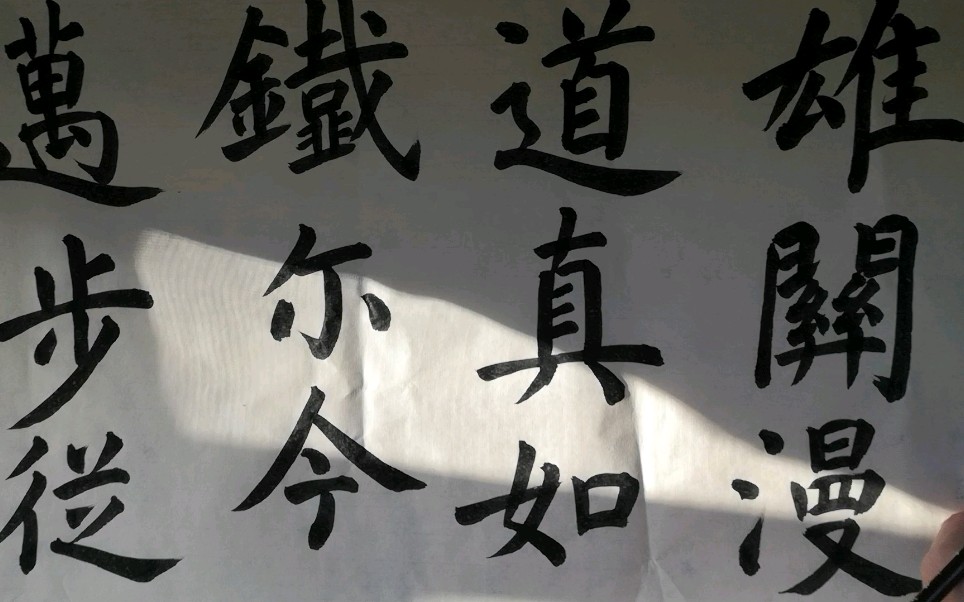 雄關漫
道真如
鐵尔今
邁步從